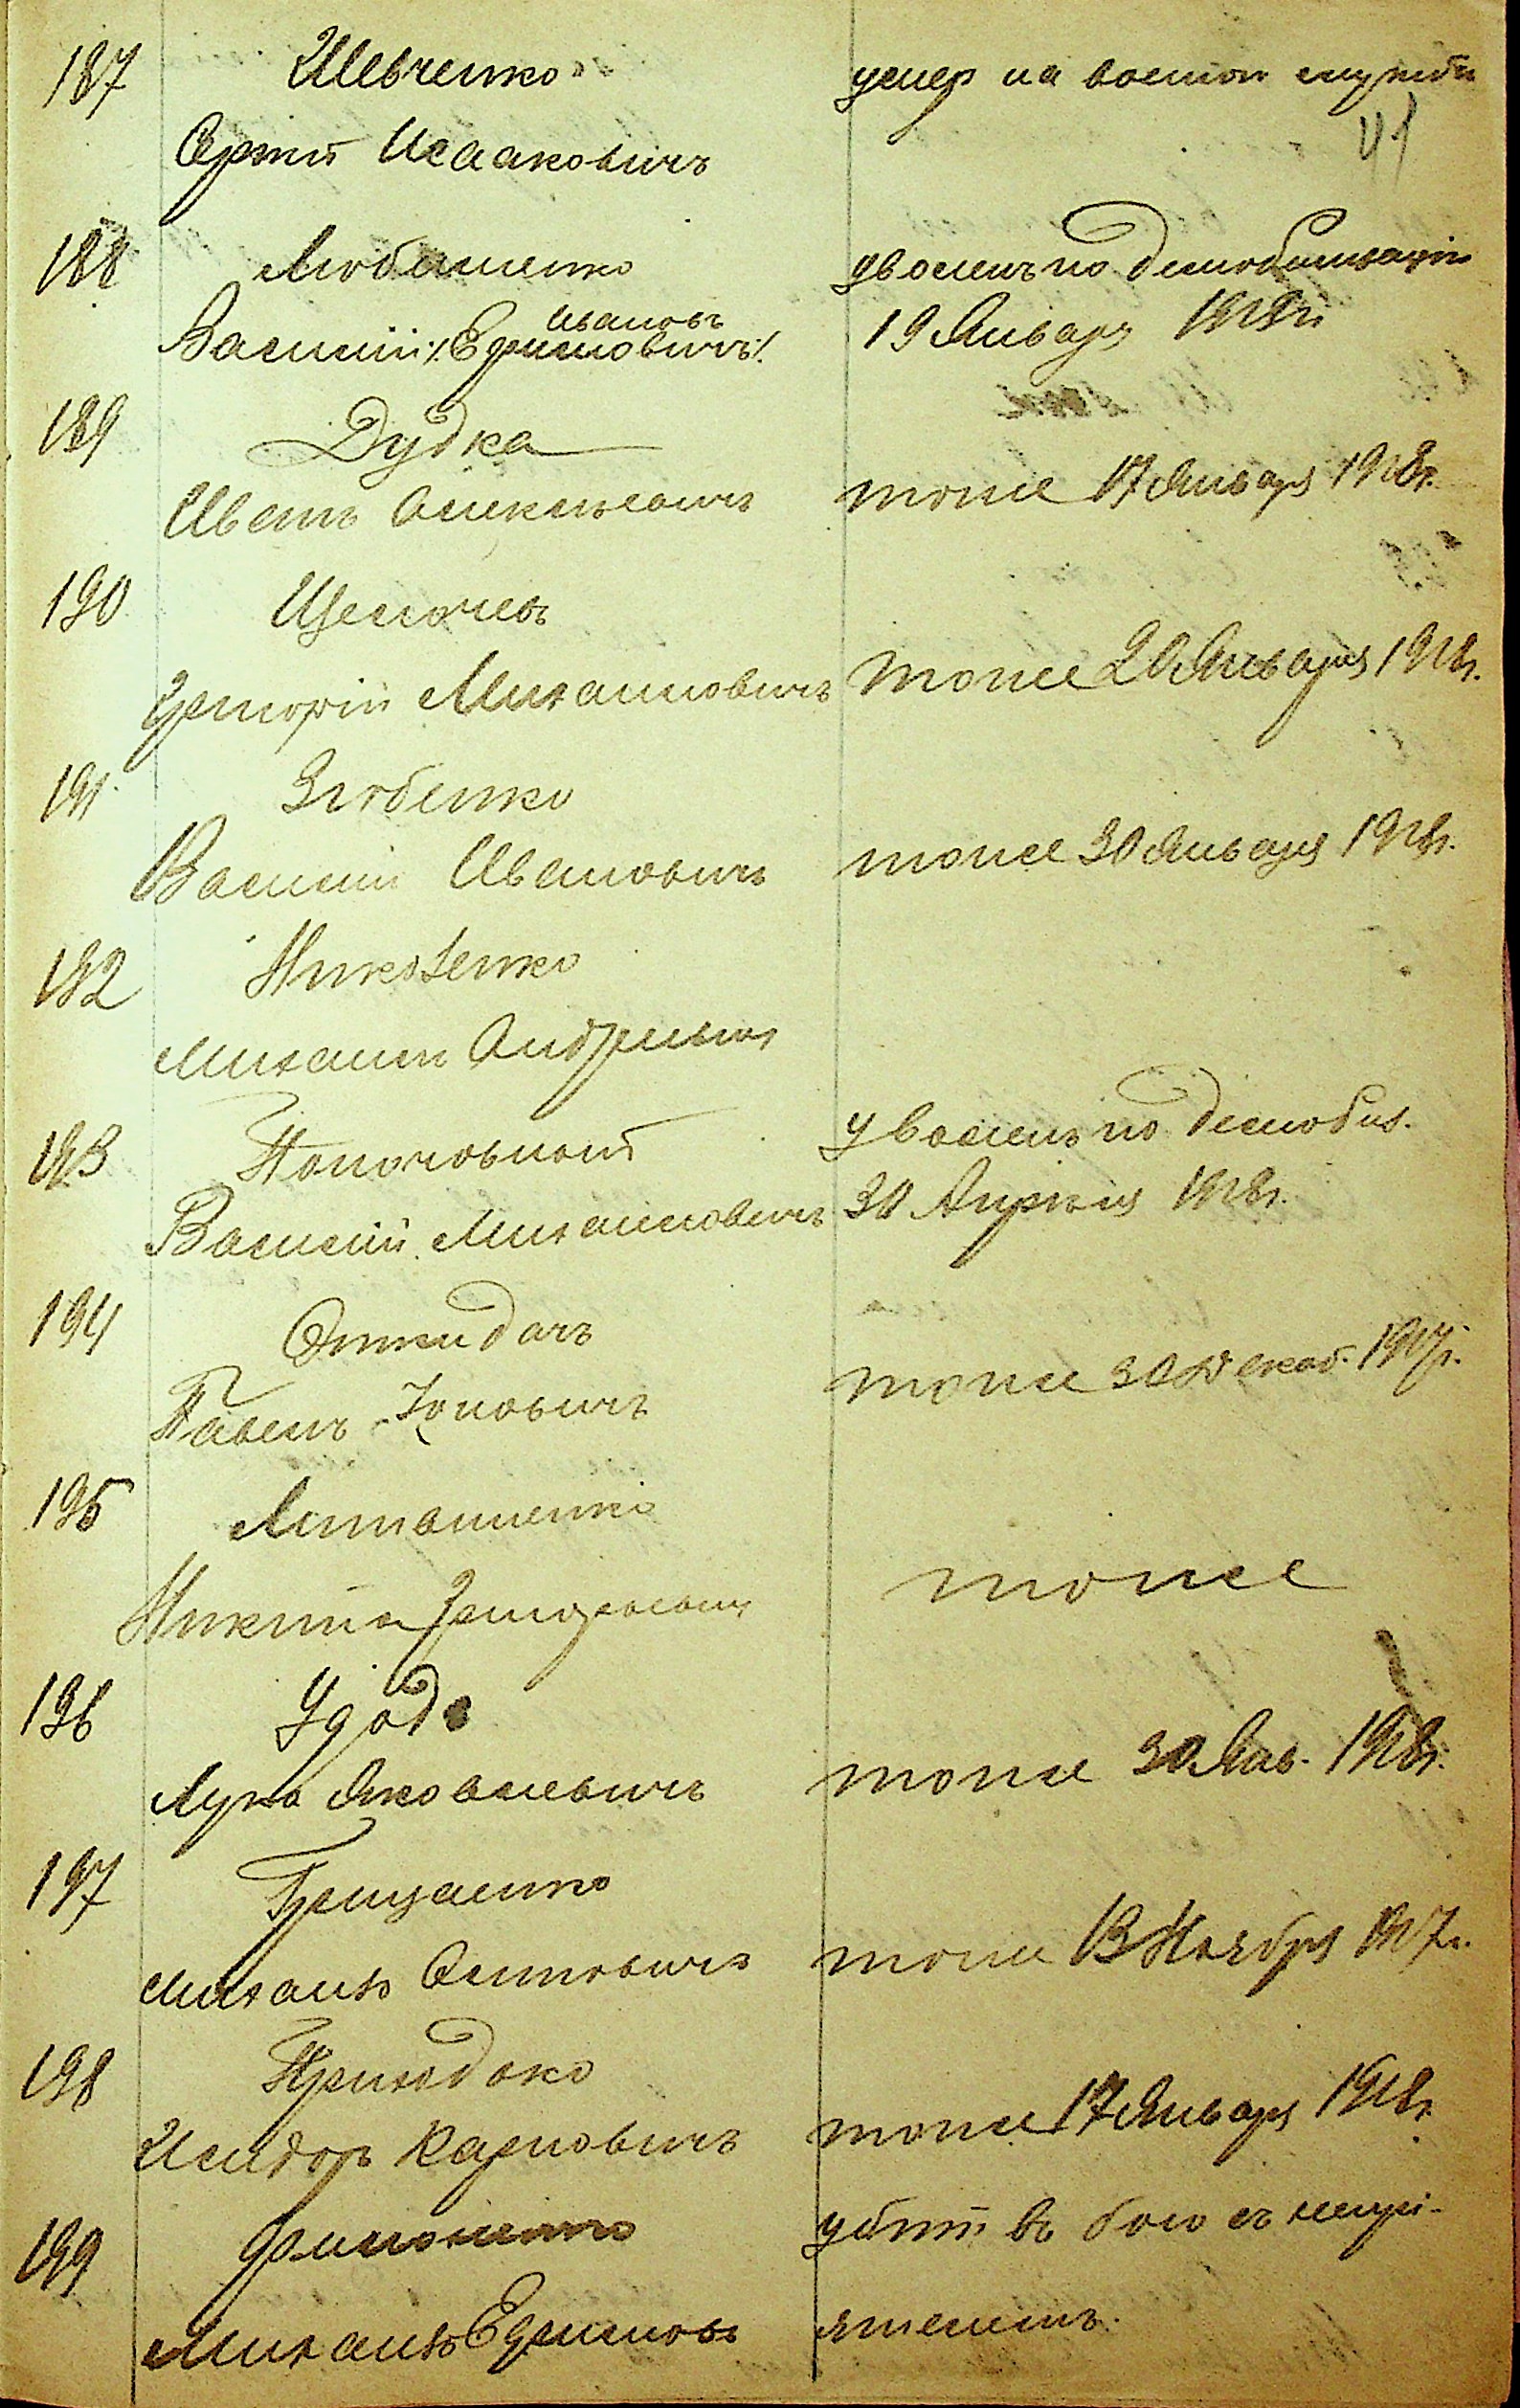 187 Шевченко умер на воен. службѣ
41
Сергій Исааковичъ
188 Любашенко уволенъ по демобилизаціи
Ивановъ
Василій /Ефимовичъ/ 19 Января 1918 г.
189 Дудка
Иванъ Алексѣевичъ тоже 17 Января 1918 г.
190 Щеголевъ
Григорій Михайловичъ тоже 20 Января 1918 г.
191 Злобенко
Василій Ивановичъ тоже 30 Января 1918 г.
192 Николенко
Михаилъ Андреевъ
193 Полоч уволенъ по демобил.
Василій Михайловичъ 30 Апрѣля 1918 г.
194 Откидачъ
Павелъ Іоновичъ тоже 30 Декаб. 1917 г.
195 Литвиненко
Никита Григорьевичъ тоже
196 Удодъ
Лука Яковлевичъ тоже 30 Янв. 1918 г.
197 Грищенко
Михаилъ Осиповичъ тоже 13 Ноября 1917 г.
198 Приходько
Исидоръ Карповичъ тоже 17 Января 1918 г.
199 Филоненко убитъ въ бою съ непрі-
Михаилъ Ефимовъ ятелемъ.